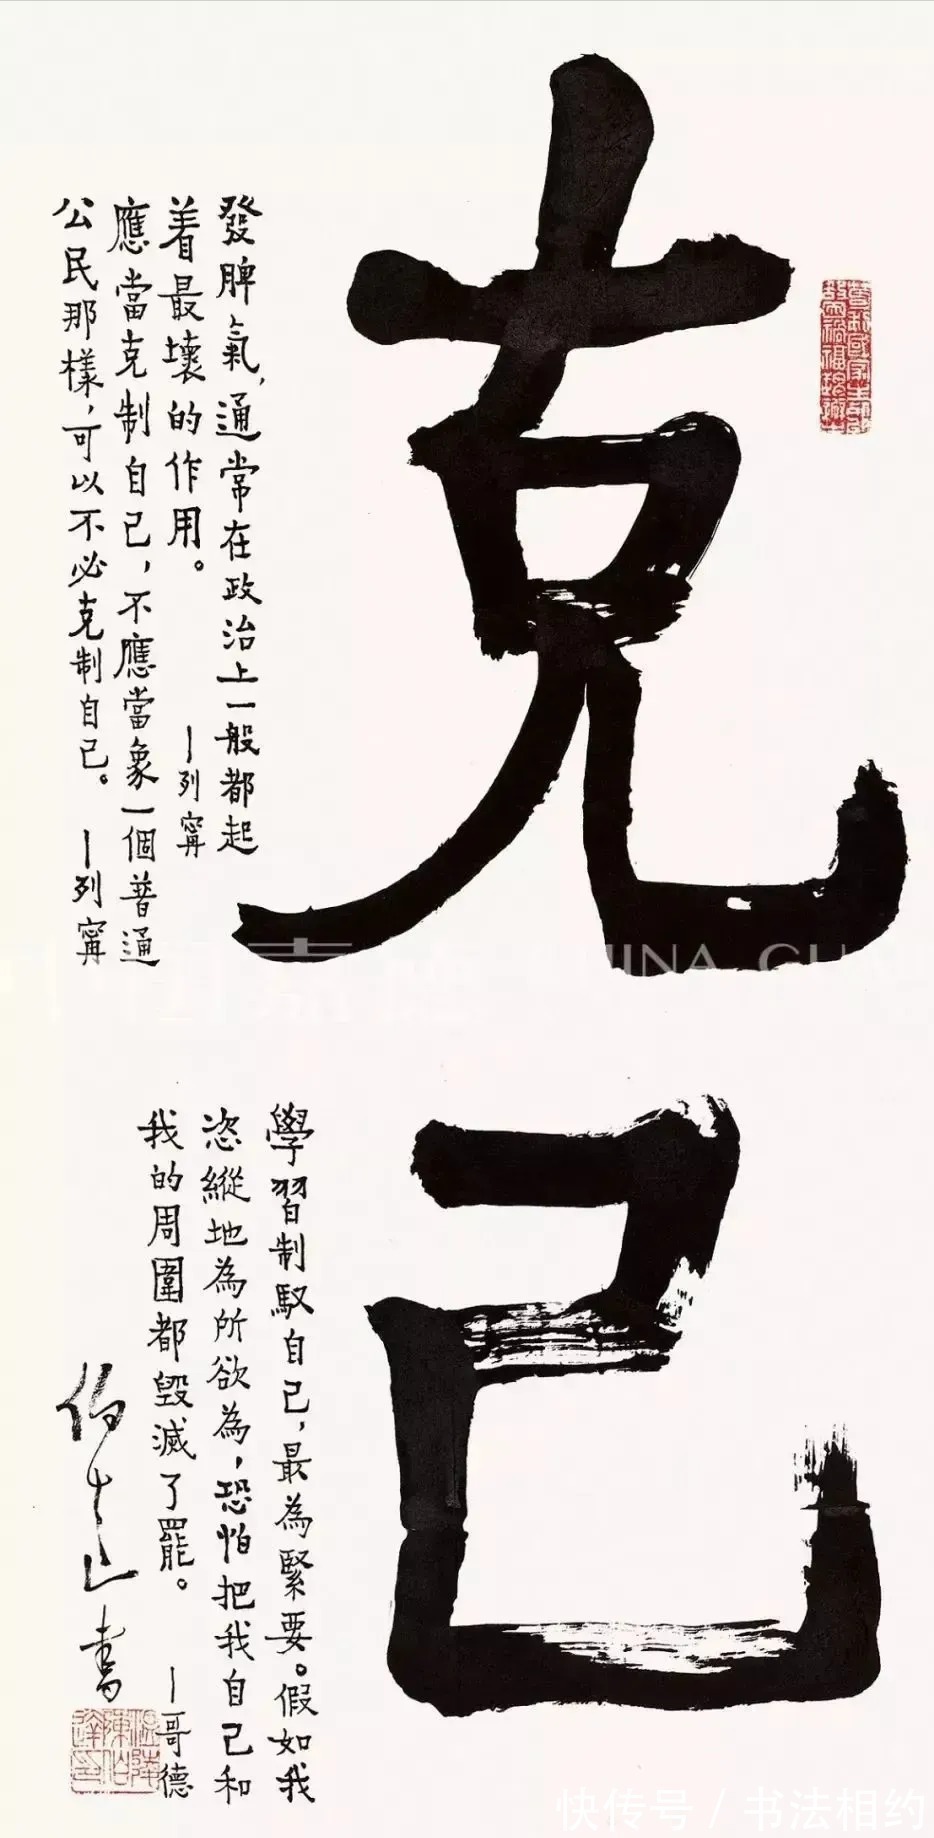 克己
發脾氣，通常在政治上一般都起
着最壞的作用。
—列寧
應當克制自己，不應當象一個普通
公民那樣，可以不必克制自己。
—列寧
學習制馭自己，最為緊要。假如我
恣縱地為所欲為，恐怕把我自己和
我的周圍都毀滅了罷。
—哥德
伯達書
嘉德
CHINA GU
快传号 / 书法相约